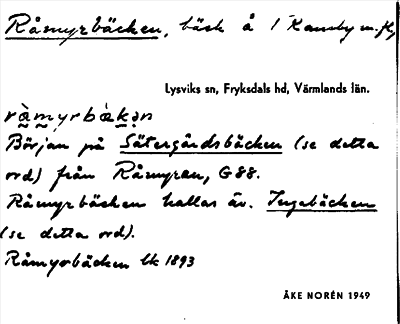 Råmyrbäcken, bäck å 1 Kansby m.fl,
Lysviks sn, Fryksdals hd, Värmlands län.
ràmyrbàkən
Början på Sätergårdsbäcken (se detta
ord) från Råmyran, G 88.
Råmyrbäcken kallas äv. Ingebäcken
(se detta ord).
Råmyrbäcken lk 1893
ÅKE NORÉN 1949